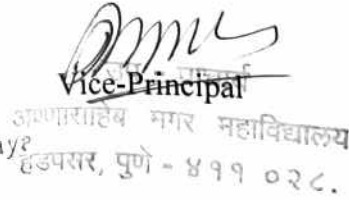 Vice-Principal
अण्णासाहेब मगर महाविद्यालय
हडपसर, पुणे - ४११ ०२८.